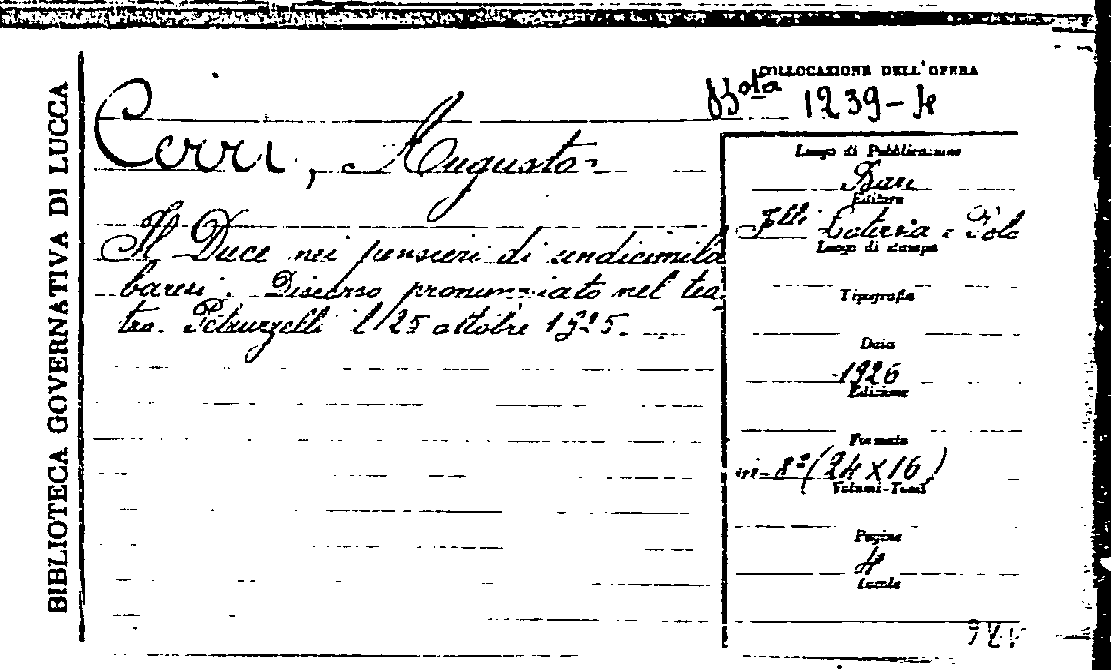 BIBLIOTECA GOVERNATIVA DI LUCCA
COLLOCAZIONE DELL'OPERA
Bta 1239-4
Cerri, Augusto-
Il Duce nei pensieri di undicimila
baresi. Discorso pronunziato nel tea
tro. Petruzzelli il 25 ottobre 1925.
Luogo di Pubblicazione
Bari
Editore
Flli Laterza e Polo
Luogo di stampa
Tipografia
Data
1926
Edizione
Formato
in-8º (24 x 16)
Volumi-Tomi
Pagine
4
Tavole